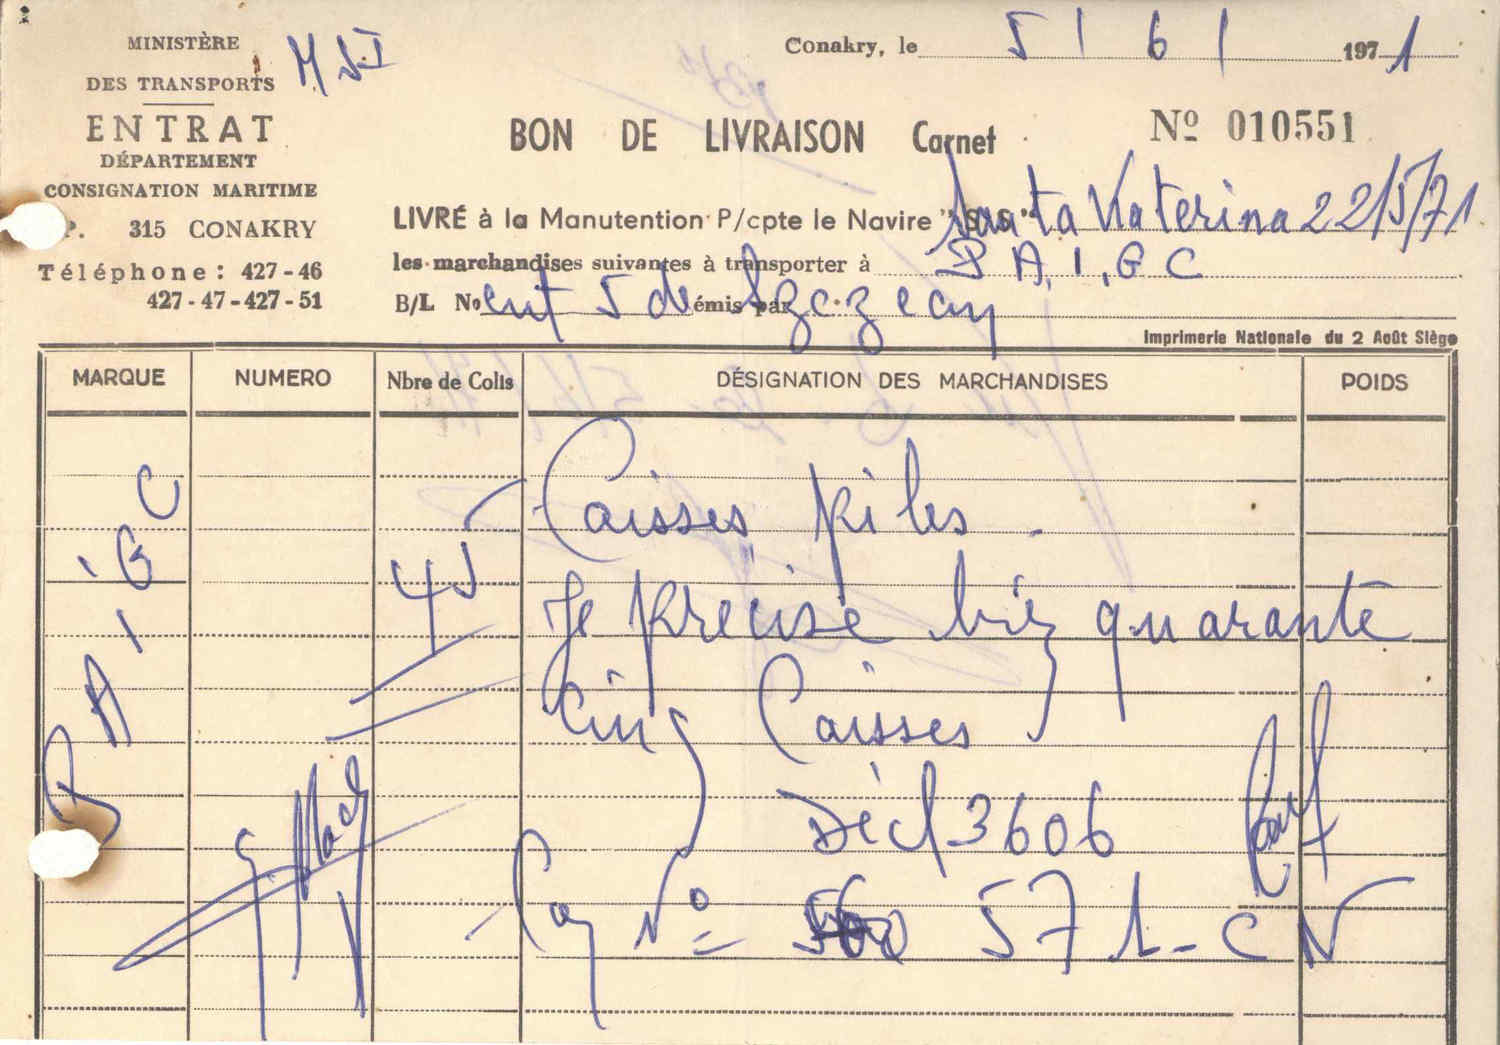 MINISTÈRE
DES TRANSPORTS
ENTRAT
DÉPARTEMENT
CONSIGNATION MARITIME
P. 315 CONAKRY
Téléphone : 427-46
427-47-427-51
Conakry, le 5 / 6 / 1971
BON DE LIVRAISON Carnet Nº 010551
LIVRÉ à la Manutention P/cpte le Navire "S.S." Santa Katerina 22/5/71
les marchandises suivantes à transporter à P.A.I.G.C
B/L No ent 5 de émis par Szczecin
Imprimerie Nationale du 2 Août Siège
MARQUE NUMERO Nbre de Colis DÉSIGNATION DES MARCHANDISES POIDS
PAIGC
45 Caisses piles
Je précise bien quarante
cinq Caisses
Décl 3606
Nº 571-CN